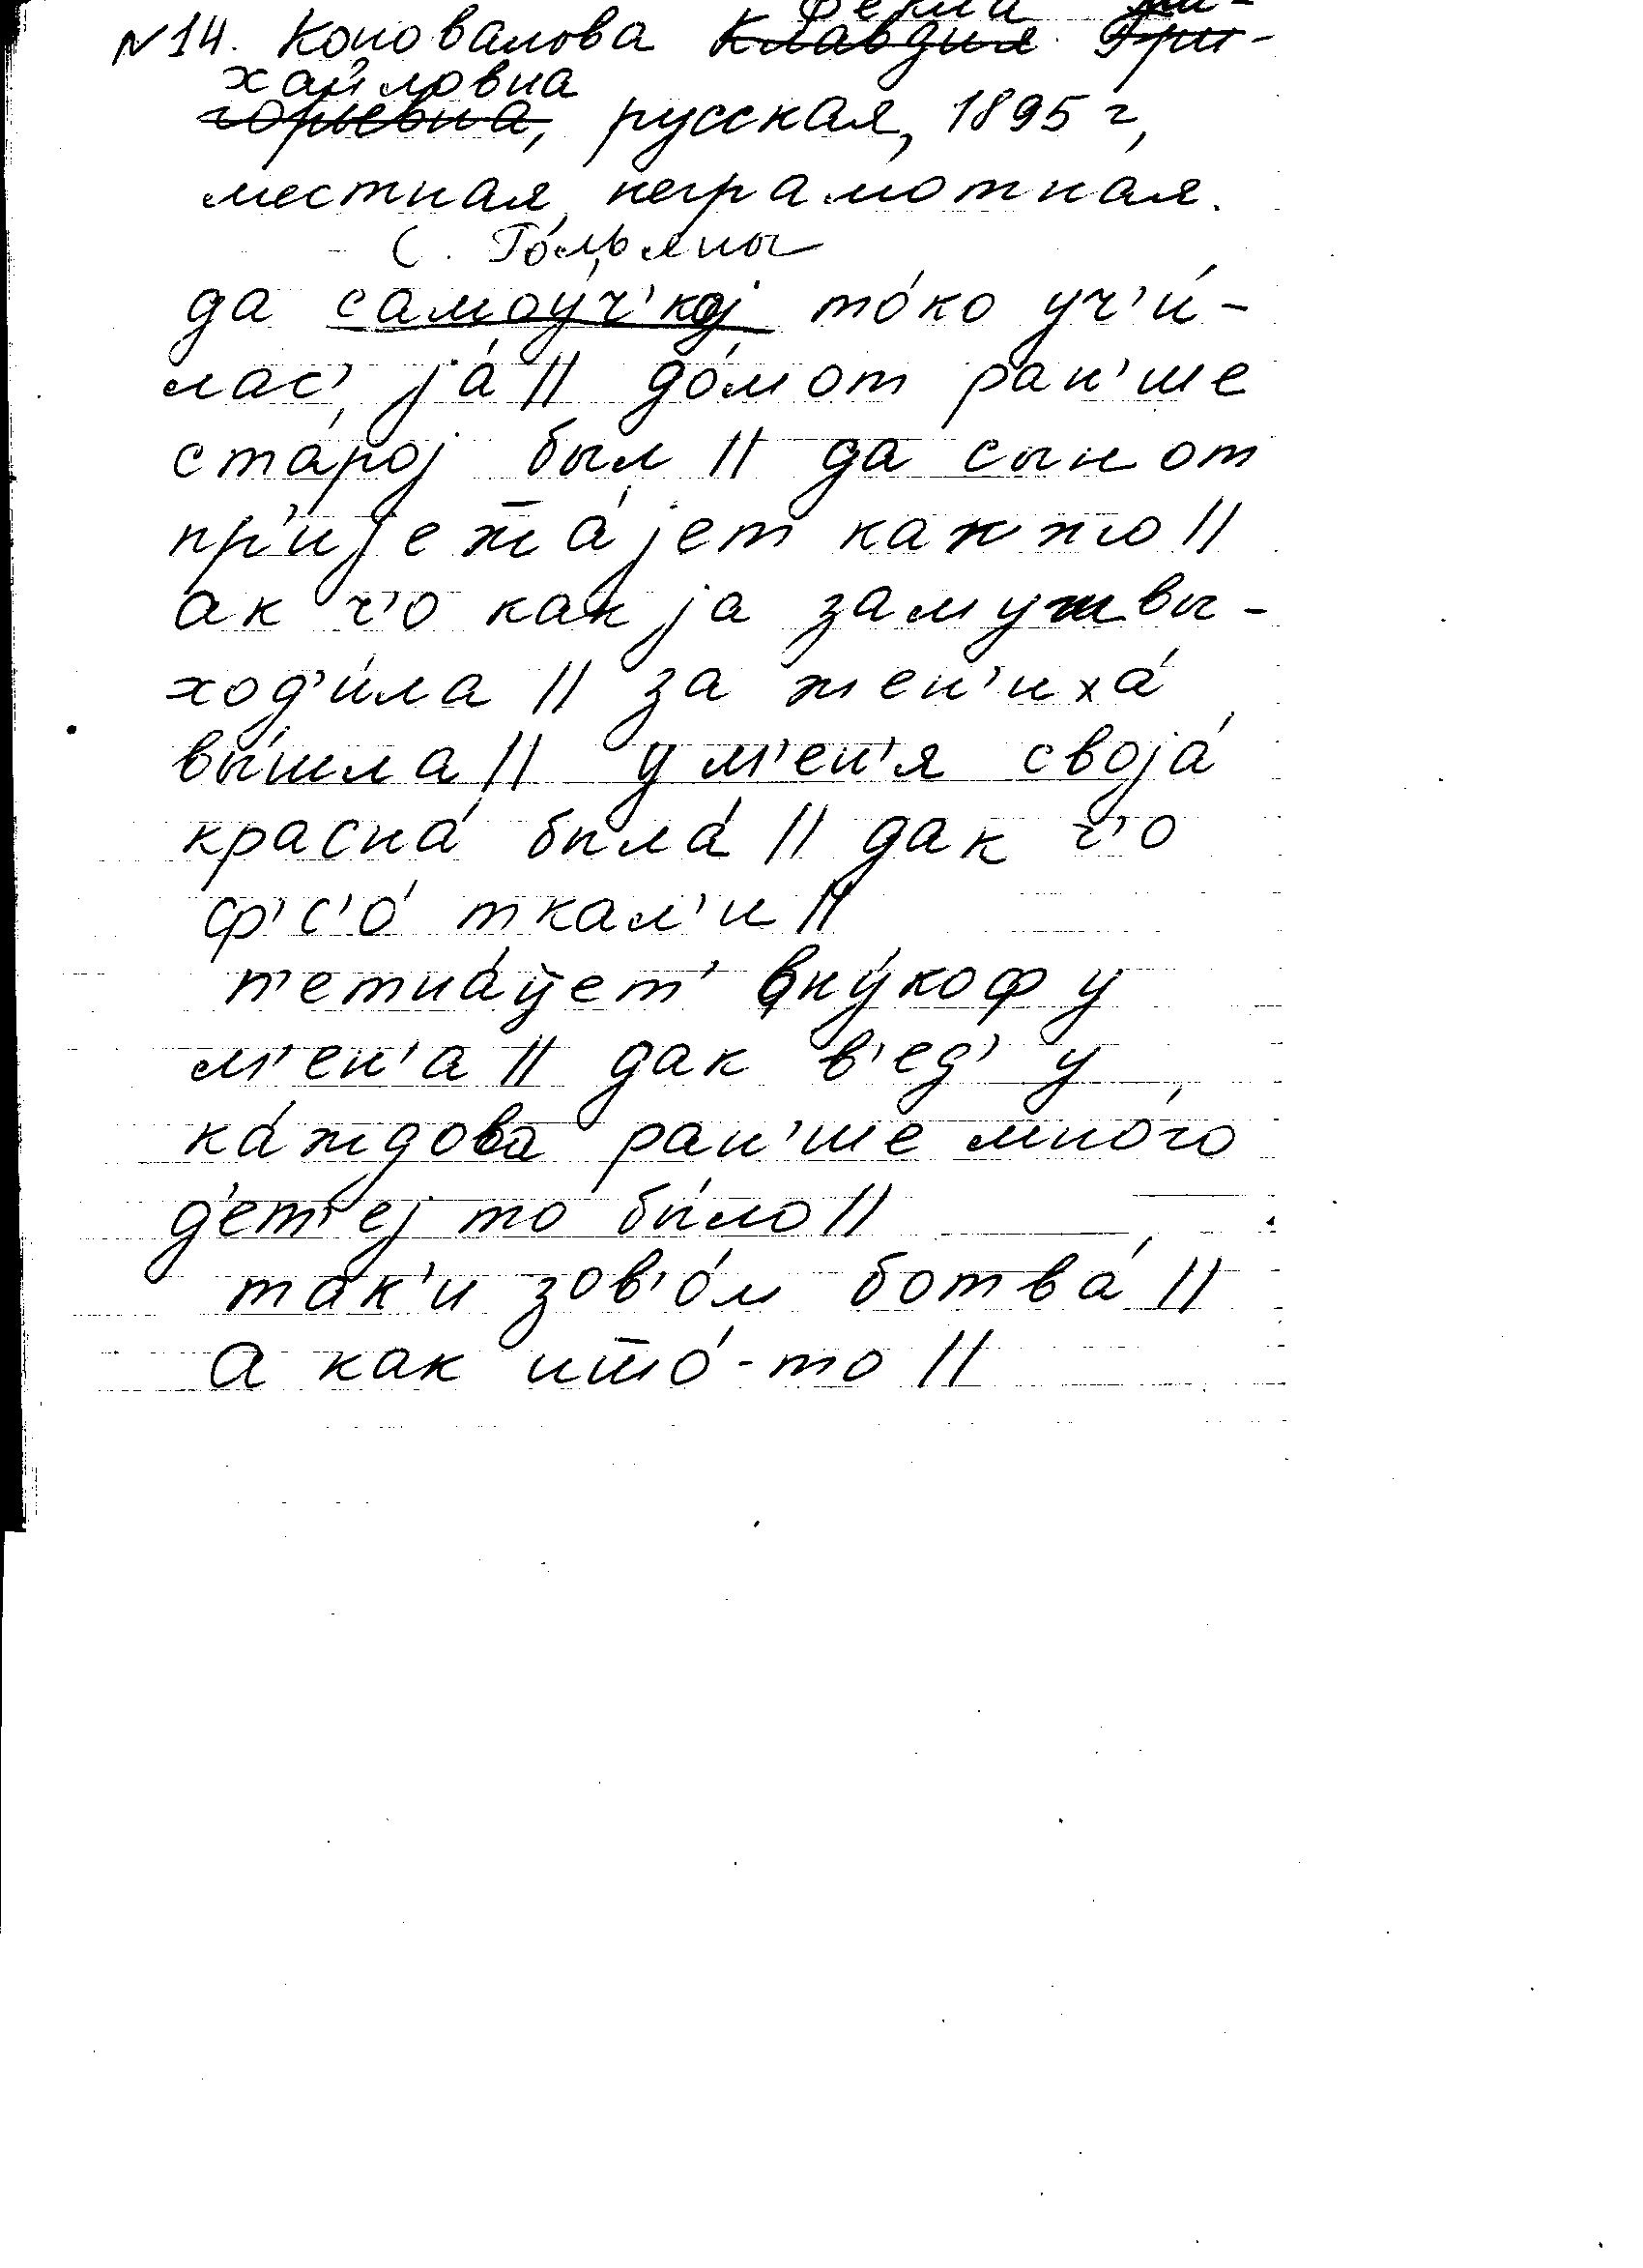 Фекла Ми-
№14. Коновалова Клавдия Гри-
хайловна
горьевна, русская, 1895 г,
местная, неграмотная.
С. Го́льяны
да самоу́ч'кој то́ко уч'и́-
лас', ја́ || до́мот ран'ше
ста́рој был || да сынот
пр'ијеж̅а́јет кажжо ||
ак ч'о как ја замужвы-
ход'и́ла || за жен'иха́
вы́шла || у м'ен'я своја́
красна́ была́ || дак ч'о
ф'с'о́ ткал'и ||
п'етна́ц̅ет' вну́коф у
м'ен'а || дак в'ед' у
ка́ждова ран'ше мно́го
д'ет'еј то бы́ло ||
так'и зов'о́м ботва́ ||
А как иш̅о́-то ||